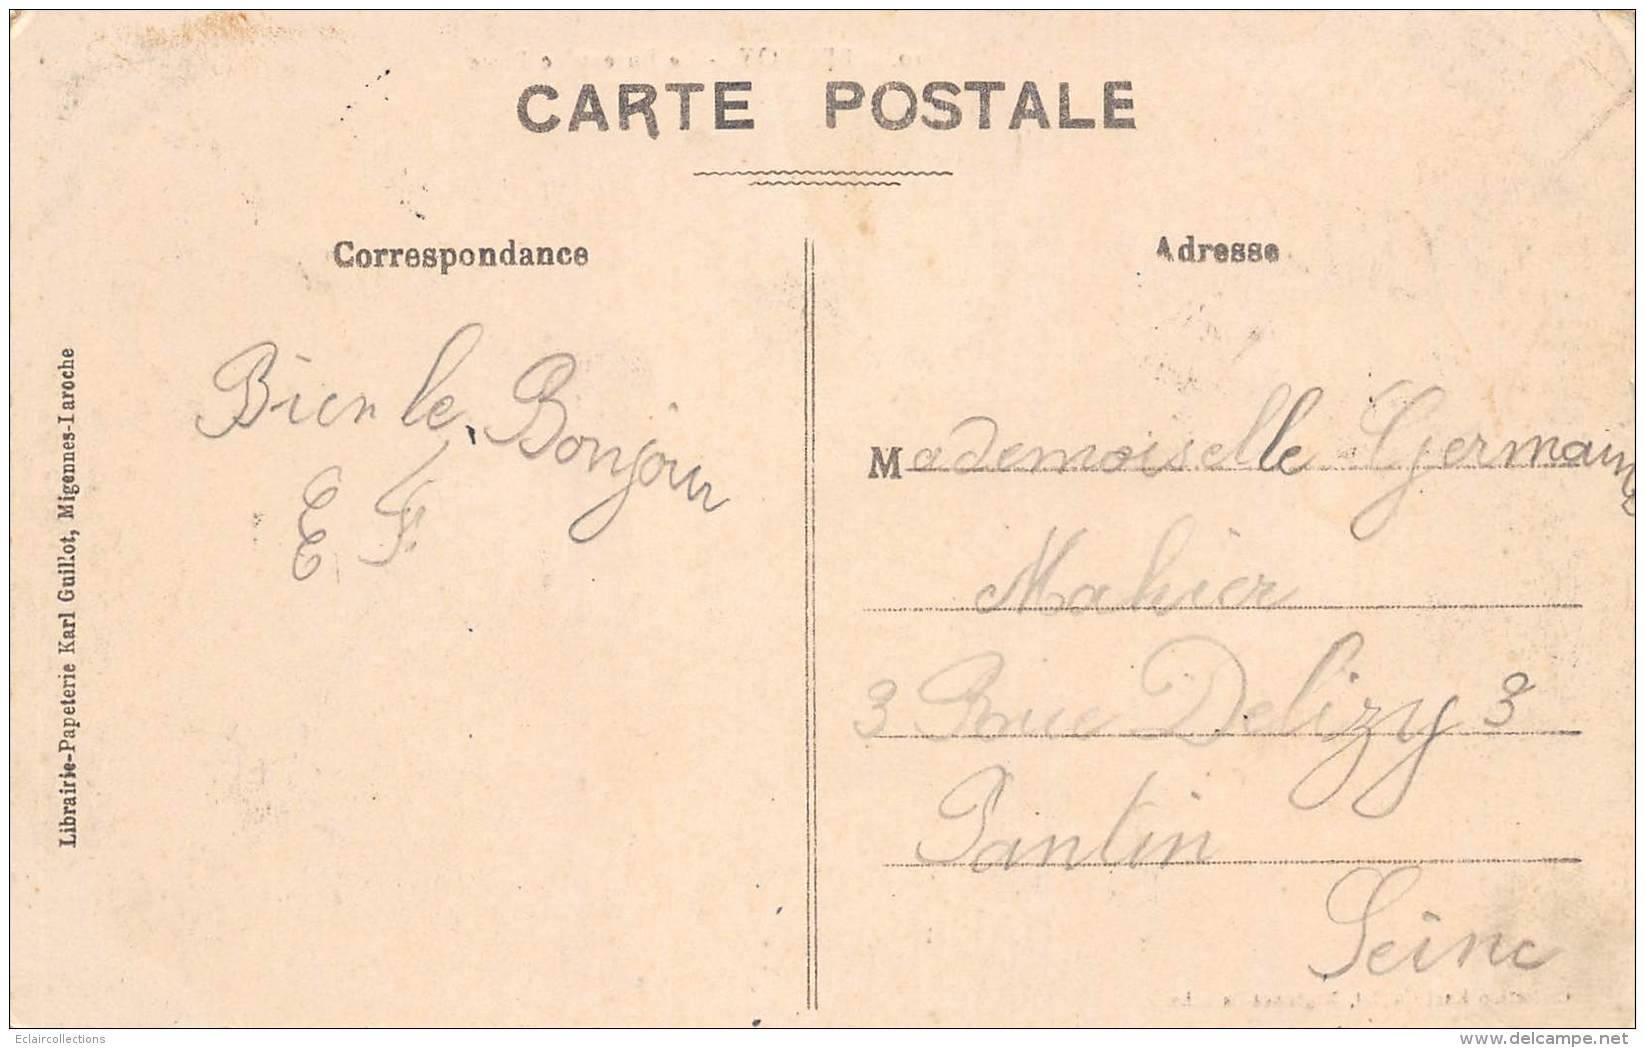 CARTE POSTALE
Correspondance
Adresse
Bien le Bonjour
E F.
Mademoiselle Germaine
Mahier
3 Rue Delizy 3
Pantin
Seine
Librairie-Papeterie Karl Guillot, Migennes-Laroche
Eclaircollections
www.delcampe.net